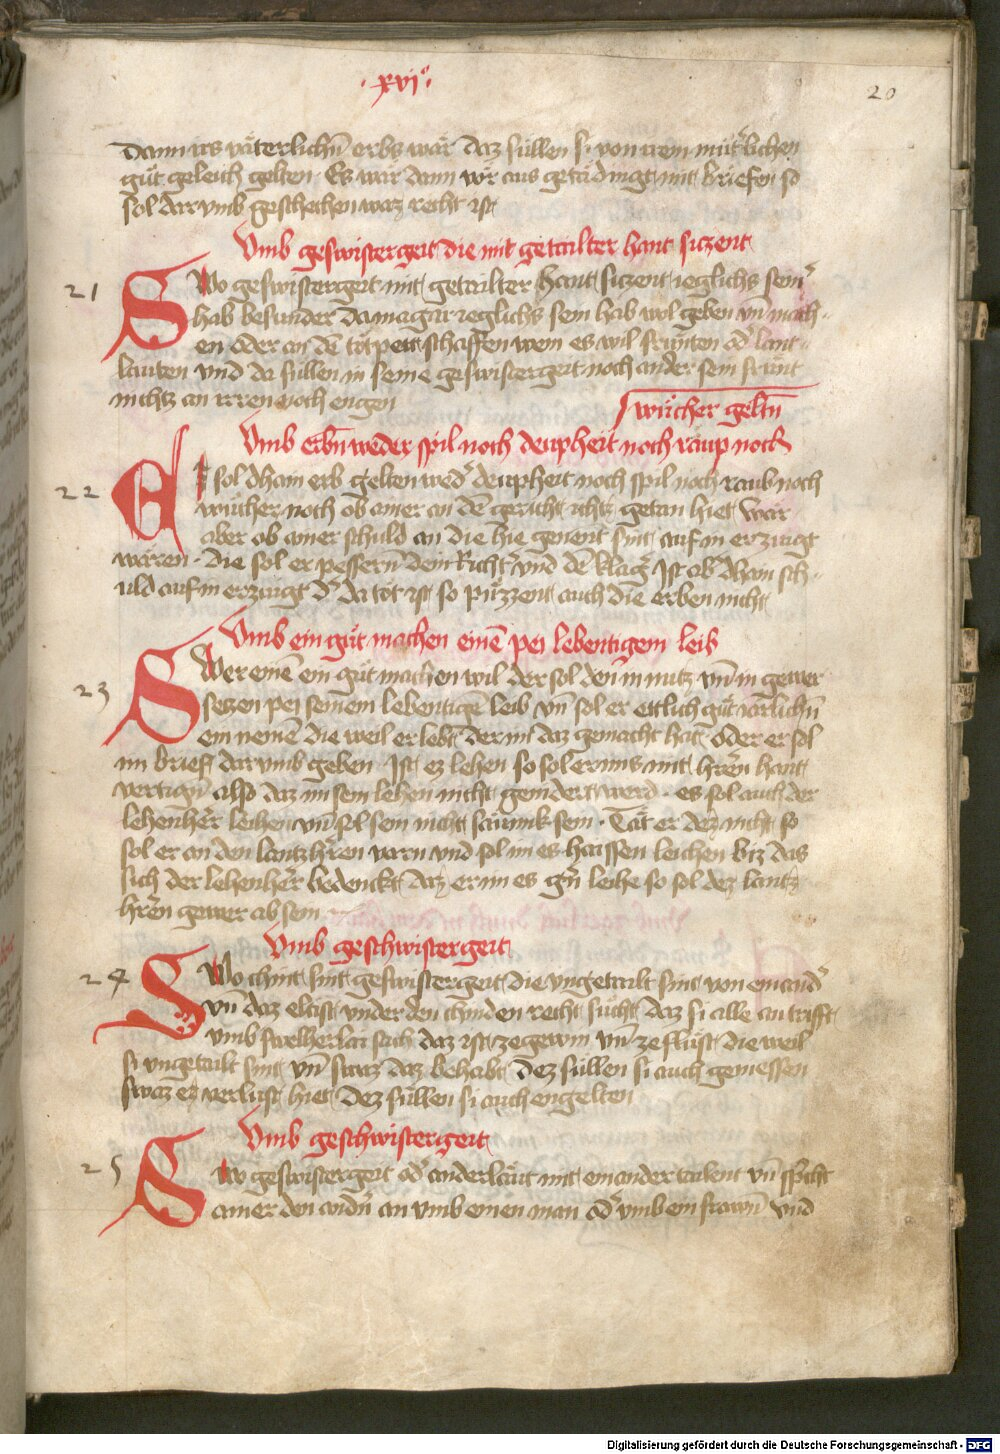 · xvj° ·
20
dann irs väterlichn̄ erbs wär daz süllen si von irem müt̕lichen
gůt geleich gelten · Ez wär dann vor aus getädingt mit briefen so
sol dar vmb geschechen waz recht ist
Vmb geswistergeit die mit getailter hant siczent
21
SWo geswistergeit mit getailter hant siczent ieglichs sein̕
hab besunder da mag ir ieglichs sein hab wol geben vn̄ mach-
en oder an dē tötpett schaffen wem es wil frünten od̕ lant-
läuten vnd da süllen in seine geswistergeit noch ander sein frünt
nichts an irren noch engen
wůcher geltn̄
Vmb erbn̄ weder spil noch deupheit noch raup noch
22
ES sol dhain erb gelten wed̕ deupheit noch spil noch raub noch
wůcher noch ob ainer an dē gericht ichtz getan hiet wär
aber ob ainer schuld an die hie genent sint auf in erzeugt
wären · die sol er pessern dem Richt̕ vnd dē klag̕ Ist ab̕ dhain sch-
uld auf in erzeugt d̕ da tot ist so püzzent auch die erben nicht
Vmb ein gůt machen einē pei lebentigem leib
23
SWer einē ein gůt machen wil der sol den in nutz vn̄ in gewer
seczen pei seinem lebentigē leib vn̄ sol er ettlich gůt iärlichn̄
ein nemē die weil er lebt der im daz gemacht hat · oder er sol
im brief dar vmb geben · Ist ez lehen so sol er ims mit hrēn hant
vertign̄ also daz im sein lehen nicht gemdert werd · es sol auch der
lehenherr leihen vn̄ sol sein nicht säumik sein · Tät er dez nicht so
sol er an den lantzhrēn varn vnd sol im es haissen leichen biz das
sich der lehenherr bedenckt daz er im es gn̄ leihe so sol dez lantz
hrēn gewer ab sein
Vmb geschwistergeit
24
SWo chint sint geswistergeit die vngetailt sint von einand̕
vn̄ daz eltist vnder den chinden recht sůcht daz si alle an trifft
vmb swelherlai sach daz ist ze gewin vn̄ ze flüst die weil
si vngetailt sint vn̄ swaz daz behabt dez süllen si auch geniessen
swaz ez verlust hiet dez süllen si auch engelten
Vmb geschwistergeit
25
SWo geswistergeit od̕ ander läut mit einander tailent vn̄ spricht
ainer den andn̄ an vmb einen man od̕ vmb ein frawn̄ vnd
Digitalisierung gefördert durch die Deutsche Forschungsgemeinschaft - DFG